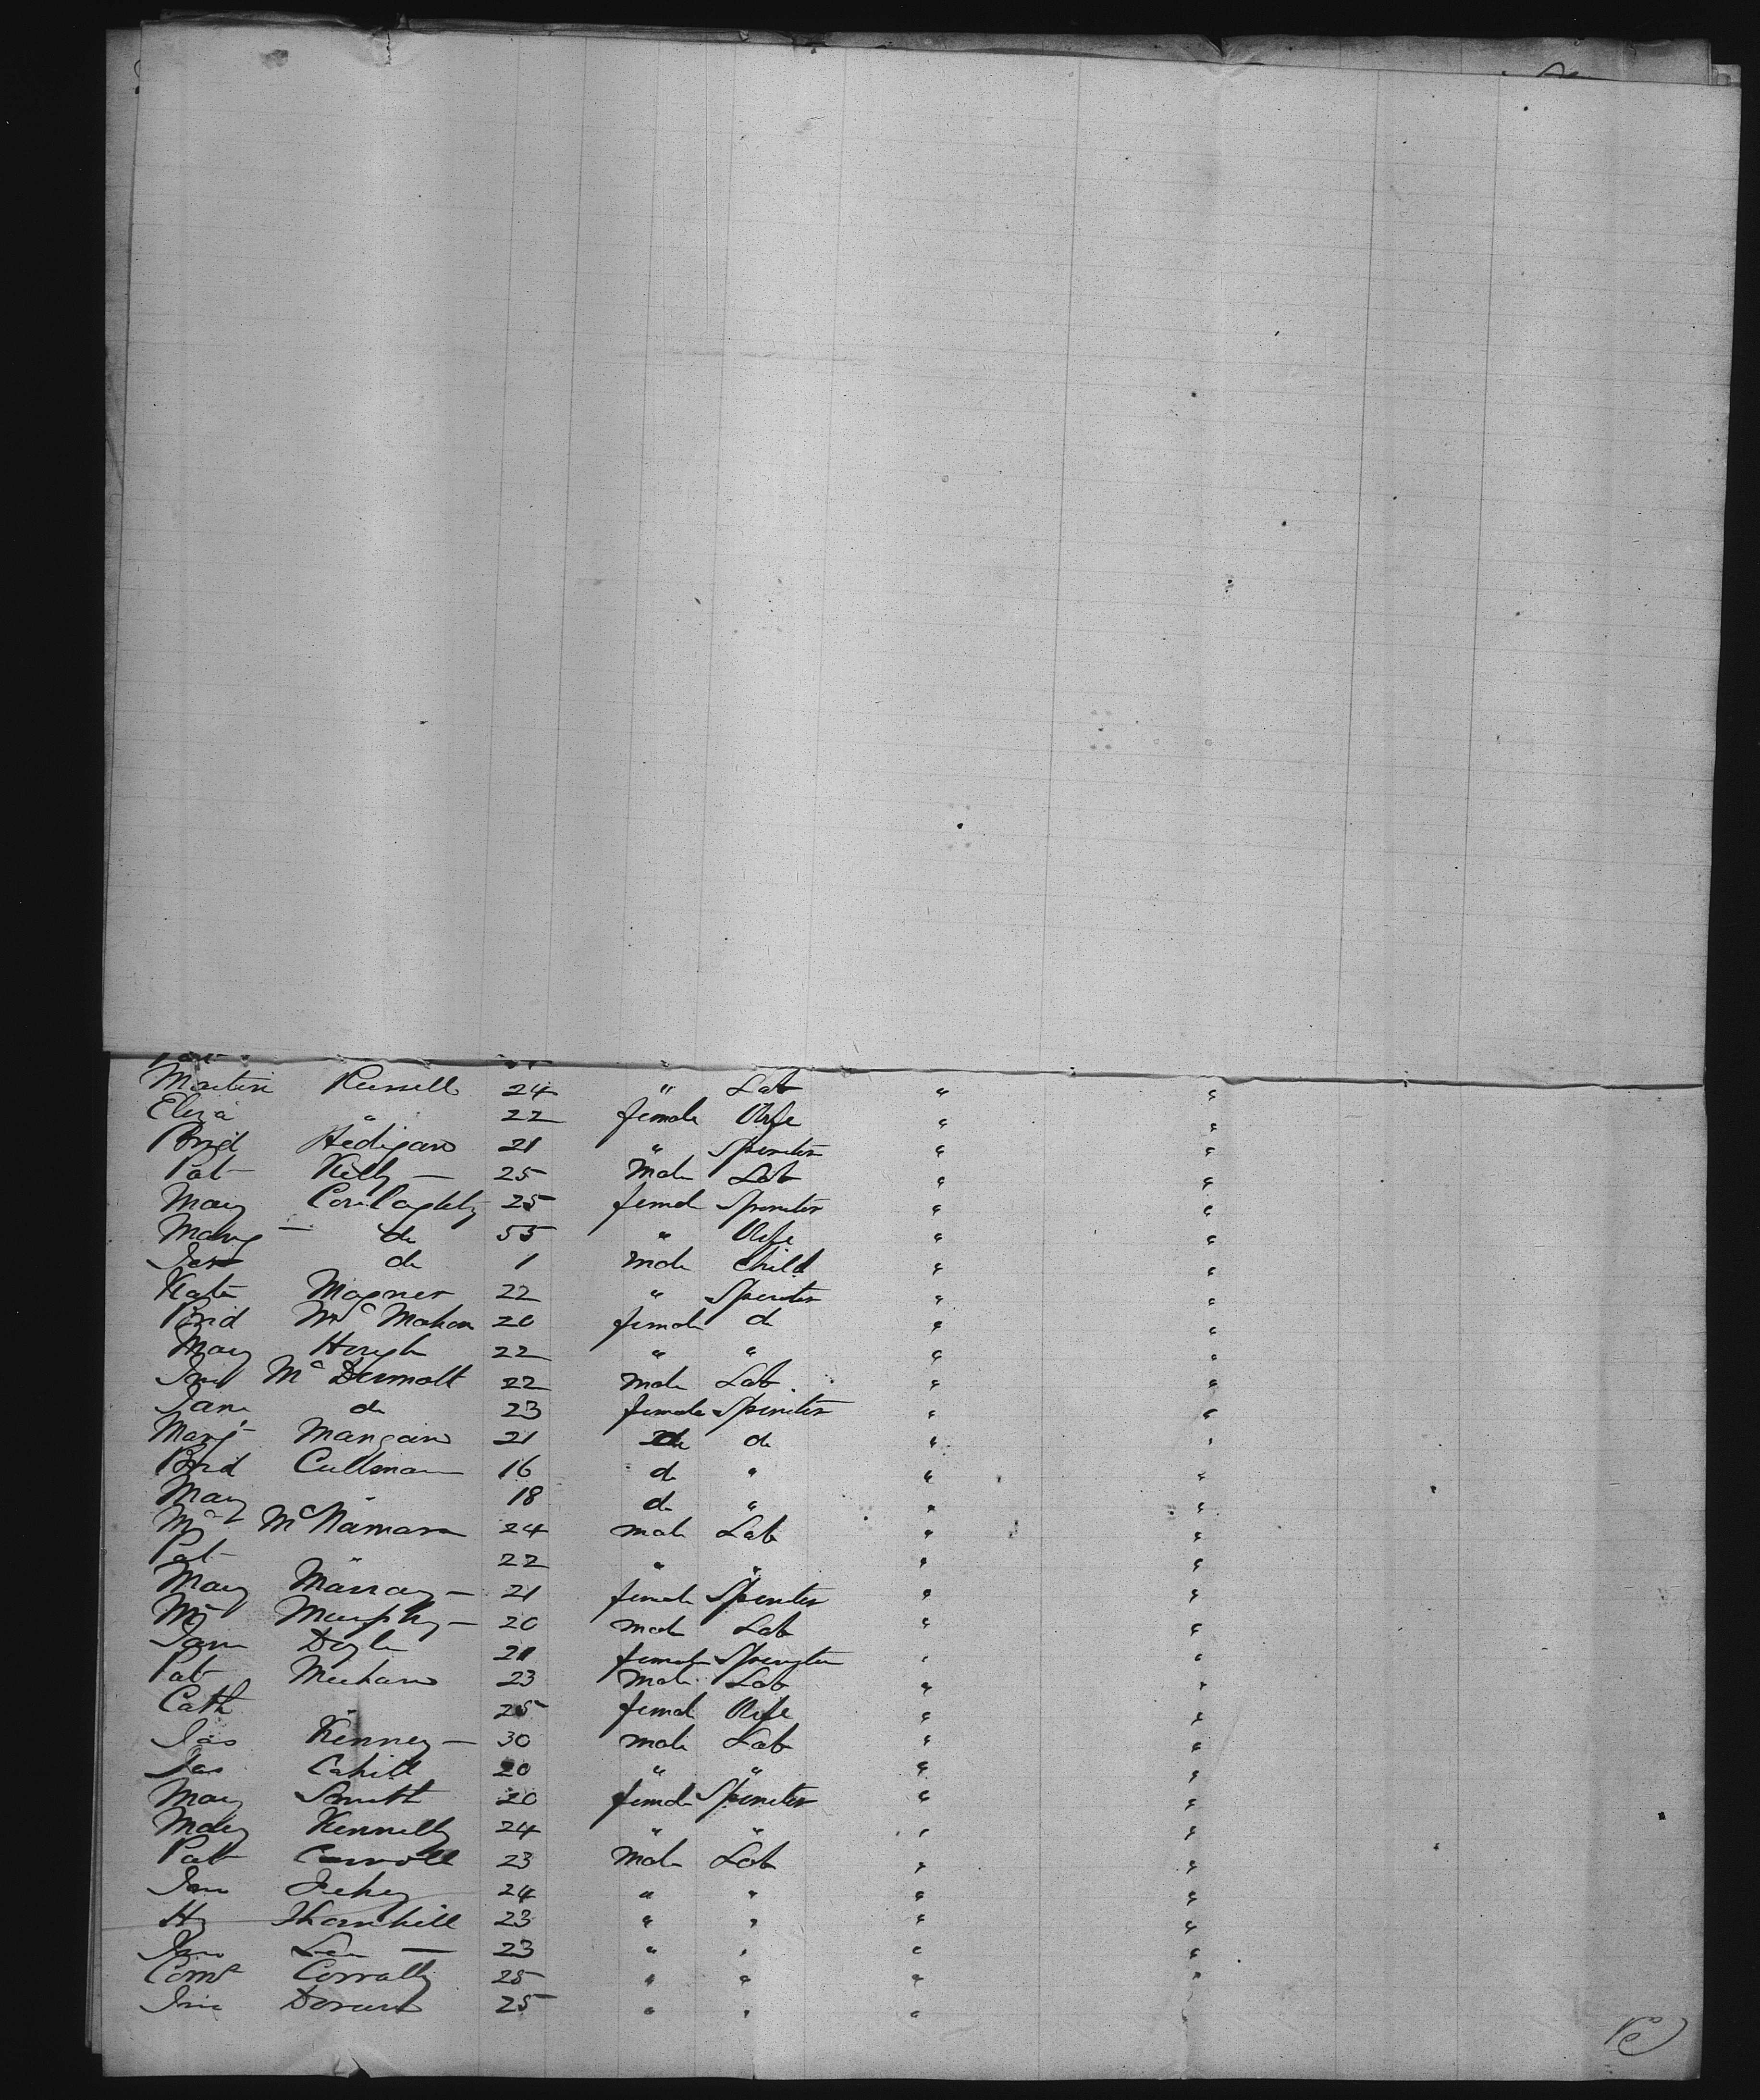 Martin Russell 24 " Lab " "
Eliza " 22 female Wife " "
Brid Hedigan 21 " Spinster " "
Pat Kelly — 25 Male Lab " "
Mary 25 female Spinster " "
Marg — do 55 " Wife " "
do 1 male Child " "
Kate Magner 22 " Spinster " "
Brid McMahon 20 female do " "
Mary Hough 22 " " " "
McDermott 22 male Lab " "
Jane do 23 female Spinster " "
Marg Mangan 21 do do " "
Brid Cullinan 16 do " " "
Mary " 18 do " " "
McNamara 24 male Lab " "
Pat " 22 " " " "
Mary Murray — 21 female Spinster " "
Murphy — 20 male Lab " "
Jane Doyle 21 female Spinster " "
Pat Meehan 23 Male Lab " "
Cath " 25 female Wife " "
Jas Kenney — 30 male Lab " "
Jas Cahill 20 " " " "
Mary Smith 20 female Spinster " "
Mary Kennelly 24 " " " "
Pat Carroll 23 Male Lab " "
24 " " " "
Hy Thornhill 23 " " " "
— 23 " " " "
25 " " " "
25 " " "